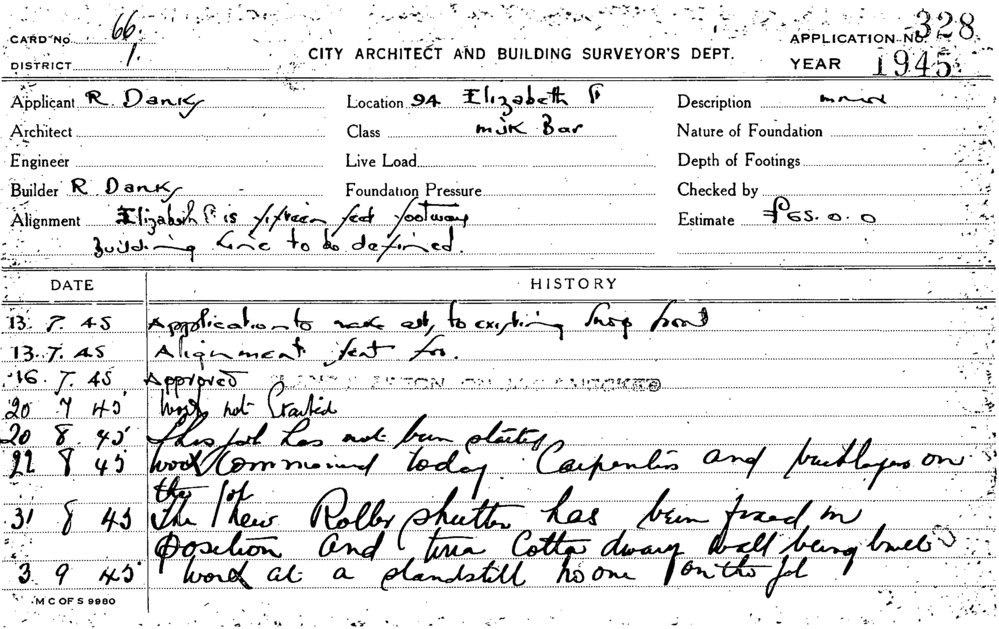 CARD No. 66.
DISTRICT 1.
CITY ARCHITECT AND BUILDING SURVEYOR'S DEPT.
APPLICATION No. 328
YEAR 1945
Applicant R Danks Location 94 Elizabeth St Description minor
Architect Class milk Bar Nature of Foundation
Engineer Live Load Depth of Footings
Builder R Danks Foundation Pressure Checked by
Alignment Elizabeth St is fifteen feet footway Estimate £65.0.0
Building Line to be defined.
DATE HISTORY
13. 7. 45 Application to make alts, to existing shop front
13. 7. 45 Alignment sent for.
16. 7. 45 Approved
20 7 45 Work not Started
20 8 45 This job has not been started
22 8 45 Work Commenced today Carpenters and bricklayers on
the job
31 8 45 The new Roller shutter has been fixed in
position and terra Cotta dwarf wall being built
3 9 45 Work at a standstill no one on the job
M C OF S 9980